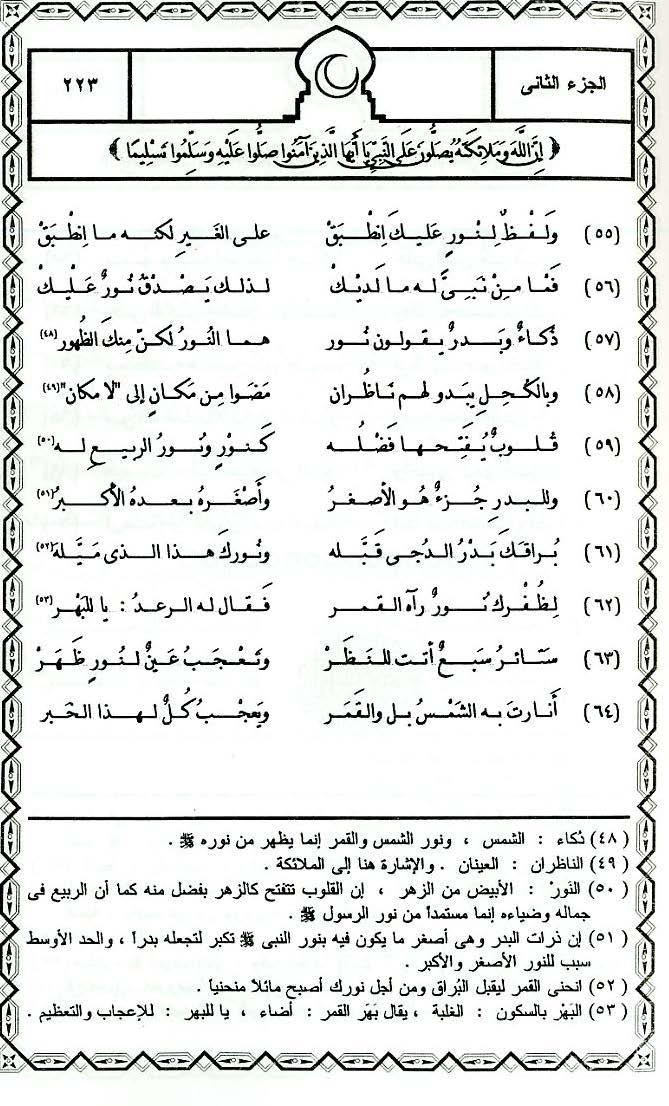 الجزء الثانى
٢٢٣
﴿ إِنَّ اللَّهَ وَمَلَائِكَتَهُ يُصَلُّونَ عَلَى النَّبِيِّ يَا أَيُّهَا الَّذِينَ آمَنُوا صَلُّوا عَلَيْهِ وَسَلِّمُوا تَسْلِيمًا ﴾
(٥٥) وَلَفْظٌ لِنُورٍ عَلَيكَ اِنْطَبَقْ على الغَيرِ لكنه ما اِنْطَبَقْ
(٥٦) فَمَا مِنْ نَبِيٍّ له ما لَدَيْكْ لذلك يَصْدُقُ نُورٌ عَلَيْكْ
(٥٧) ذُكَاءٌ وبَدرٌ يقولون نُور هما النُورُ لكنْ مِنكَ الظهور (٤٨)
(٥٨) وبالكُحلِ يبدو لهم نَاظُران مَضَوا مِن مَكانٍ إلى "لا مكان" (٤٩)
(٥٩) قُلوبٌ يُفَتِحها فَضْلُه كَنَوْرٍ ونُورُ الربيعِ له (٥٠)
(٦٠) وللبدرِ جُزءٌ هُو الأصغرُ وأصْغَرُهُ بعدهُ الأكبرُ (٥١)
(٦١) بُراقكَ بَدْرُ الدُجى قبَّله ونُوركَ هذا الذى مَيَّله (٥٢)
(٦٢) لِظُفْرِك نُورٌ رآه القمر فقال له الرعدُ : يا للبَهْر (٥٣)
(٦٣) ستائرُ سَبعٌ أتت للنَظَرْ وتَعْجَبُ عَينٌ لنُورٍ ظَهَرْ
(٦٤) أنارت به الشَمْسُ بل والقَمَر ويَعجْبُ كُلٌ لهذا الخَبر
(٤٨) ذُكاء : الشمس ، ونور الشمس والقمر إنما يظهر من نوره ﷺ .
(٤٩) الناظران : العينان . والإشارة هنا إلى الملائكة .
(٥٠) النَورْ : الأبيض من الزهر ، إن القلوب تتفتح كالزهر بفضل منه كما أن الربيع فى
جماله وضياءه إنما مستمداً من نور الرسول ﷺ .
(٥١) إن ذرات البدر وهى أصغر ما يكون فيه بنور النبى ﷺ تكبر لتجعله بدراً ، والحد الأوسط
سبب للنور الأصغر والأكبر .
(٥٢) انحنى القمر ليقبل البُراق ومن أجل نورك أصبح مائلا منحنياً .
(٥٣) البَهْر بالسكون : الغلبة ، يقال بَهَر القمر : أضاء ، يا للبهر : للإعجاب والتعظيم .